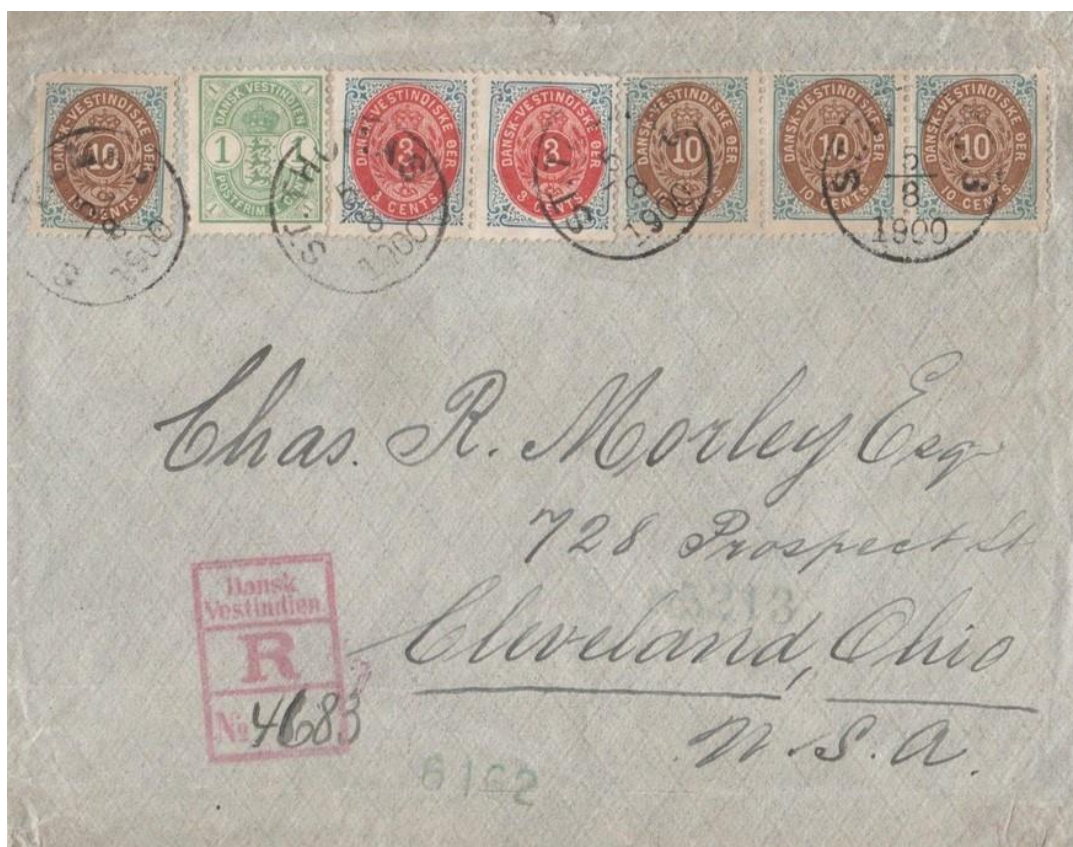 DANSK-VESTINDISKE ØER
10
10 CENTS.
DANSK VESTINDIEN
1 1
POSTFRIM. 1 CENT
DANSK-VESTINDISKE ØER
3
3 CENTS
DANSK-VESTINDISKE ØER
3
3 CENTS
DANSK-VESTINDISKE ØER
10
10 CENTS.
DANSK-VESTINDISKE ØER
10
10 CENTS.
DANSK-VESTINDISKE ØER
10
10 CENTS.
8
1900
ST. TH
5
8
1900
ST. T
5
8
1900
5
8
1900
Chas. R. Morley Esq
728 Prospect St
Cleveland, Ohio
U.S.A.
Dansk
Vestindien
R
No 4683